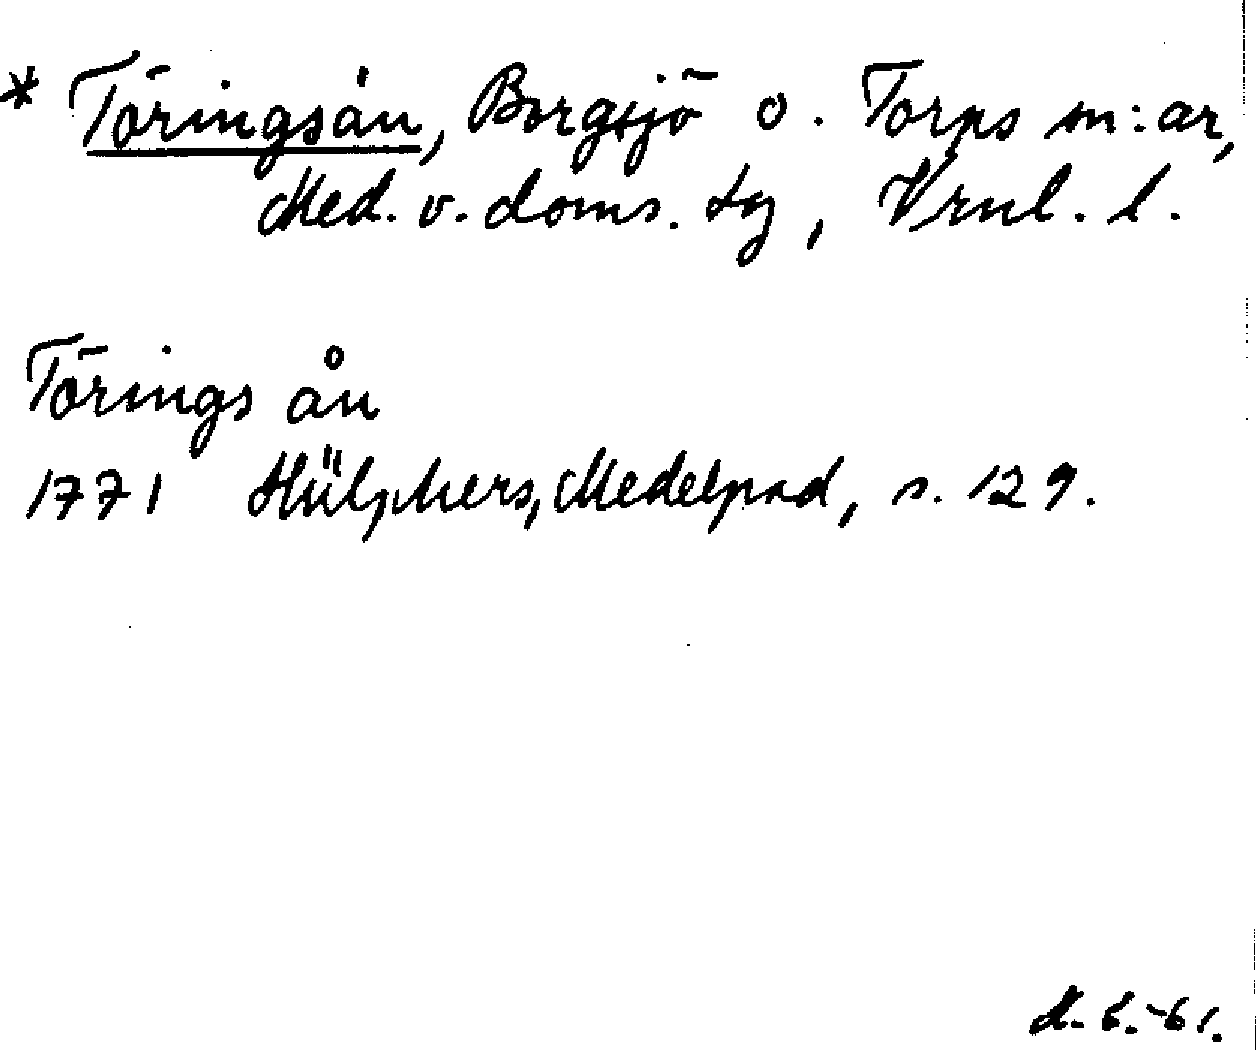 * Töringsån, Borgsjö o. Torps sn:ar,
Med. v. doms. tg, Vrnl. l.
Törings ån
1771 Hülphers, Medelpad, s. 129.